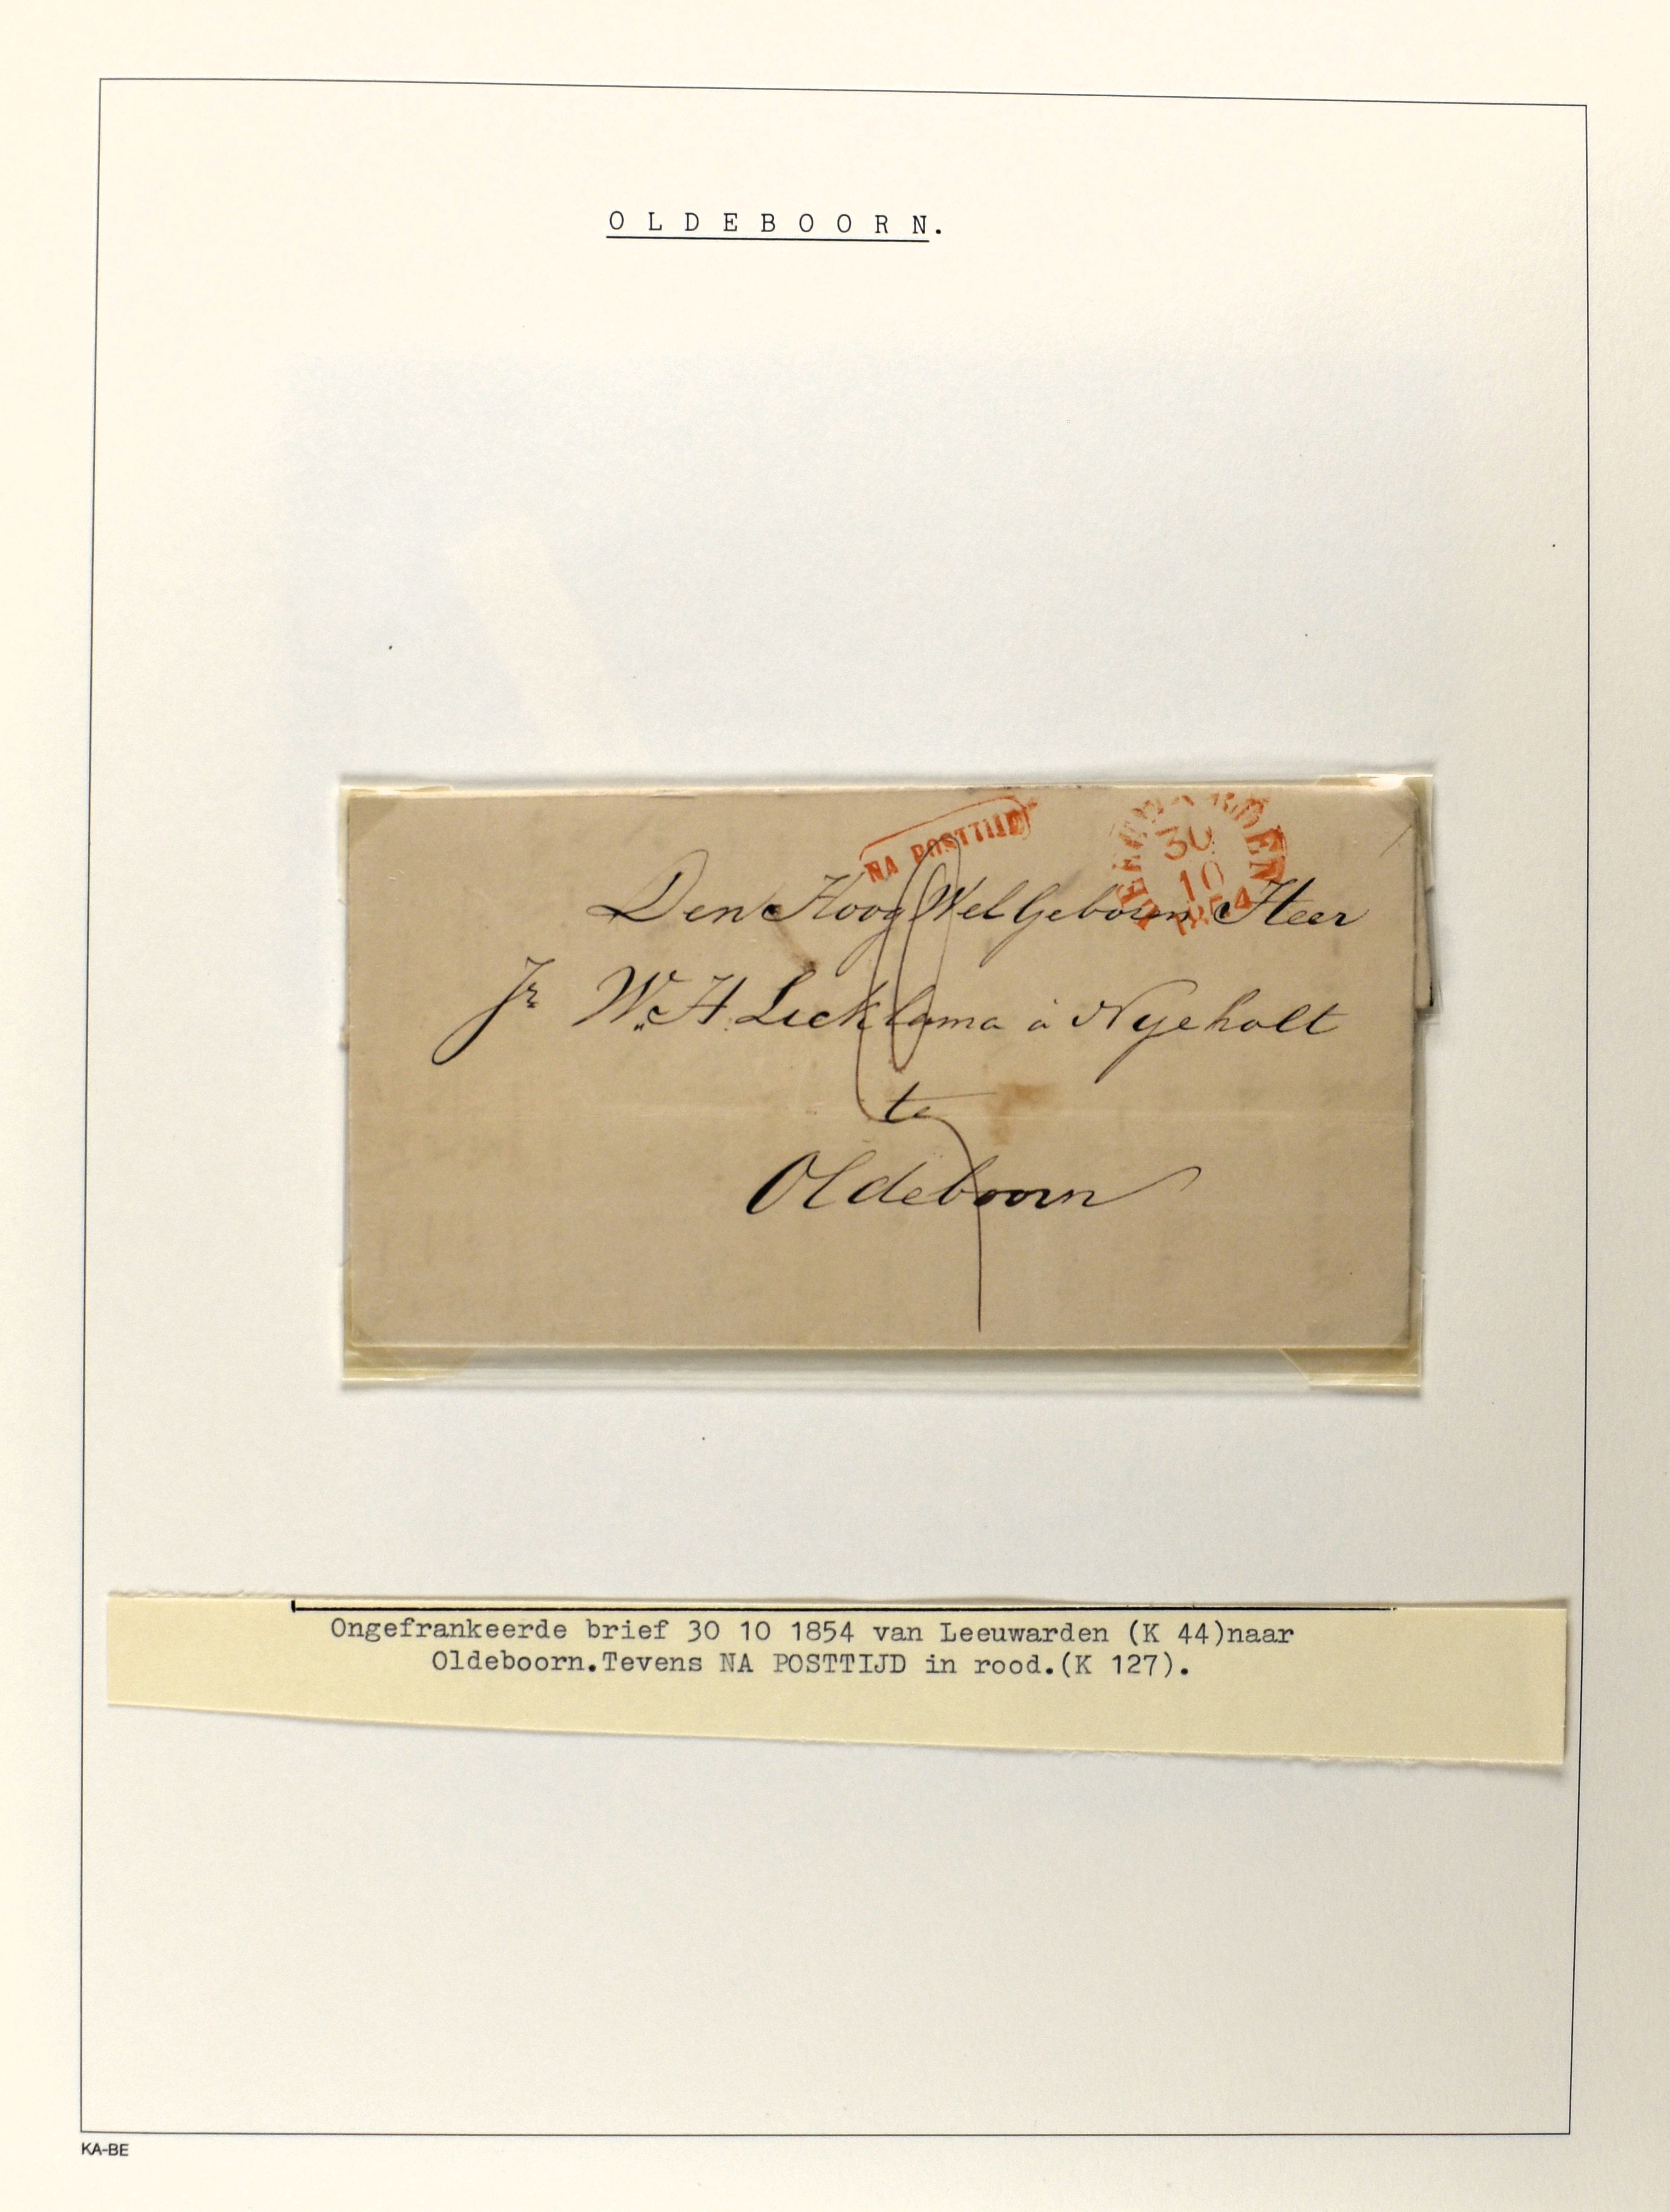 O L D E B O O R N.
NA POSTTIJD
LEEUWARDEN
30
10
1854
Den Hoog Wel Geboren Heer
Jr W. H. Lycklama à Nyeholt
te
Oldeboorn
Ongefrankeerde brief 30 10 1854 van Leeuwarden (K 44)naar
Oldeboorn.Tevens NA POSTTIJD in rood.(K 127).
KA-BE